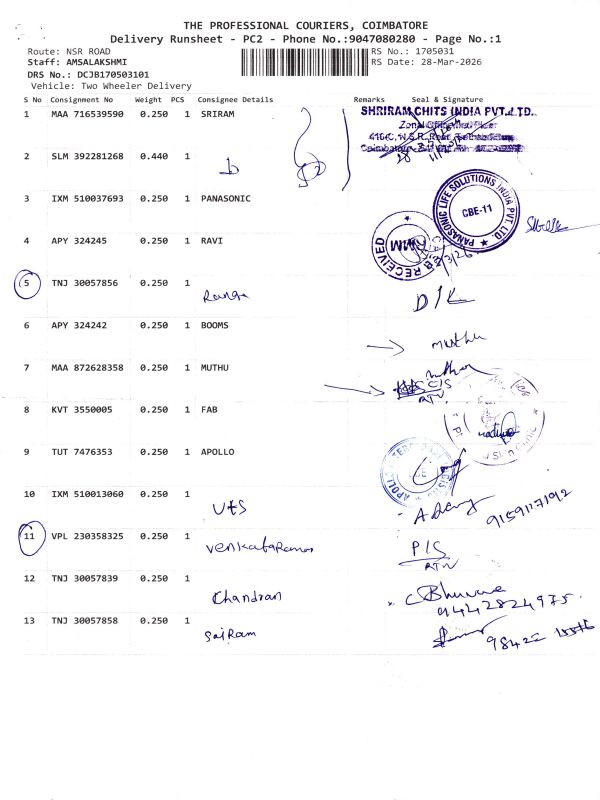 THE PROFESSIONAL COURIERS, COIMBATORE
Delivery Runsheet - PC2 - Phone No.:9047080280 - Page No.:1
Route: NSR ROAD RS No.: 1705031
Staff: AMSALAKSHMI RS Date: 28-Mar-2026
DRS No.: DCJB170503101
Vehicle: Two Wheeler Delivery
S No Consignment No Weight PCS Consignee Details Remarks Seal & Signature
1 MAA 716539590 0.250 1 SRIRAM
SHRIRAM CHITS INDIA PVT. LTD.
2 SLM 392281268 0.440 1
3 IXM 510037693 0.250 1 PANASONIC
PANASONIC LIFE SOLUTIONS INDIA PVT. LTD.
CBE-11
4 APY 324245 0.250 1 RAVI
RECEIVED
5 TNJ 30057856 0.250 1 Ranga D/L
6 APY 324242 0.250 1 BOOMS muthu
7 MAA 872628358 0.250 1 MUTHU
C/S
RTN
8 KVT 3550005 0.250 1 FAB
9 TUT 7476353 0.250 1 APOLLO
10 IXM 510013060 0.250 1 UTS
11 VPL 230358325 0.250 1 Venkataraman P/S
RTN
12 TNJ 30057839 0.250 1 Chandran C Bhuvane
9442824975.
13 TNJ 30057858 0.250 1 SaiRam 98422